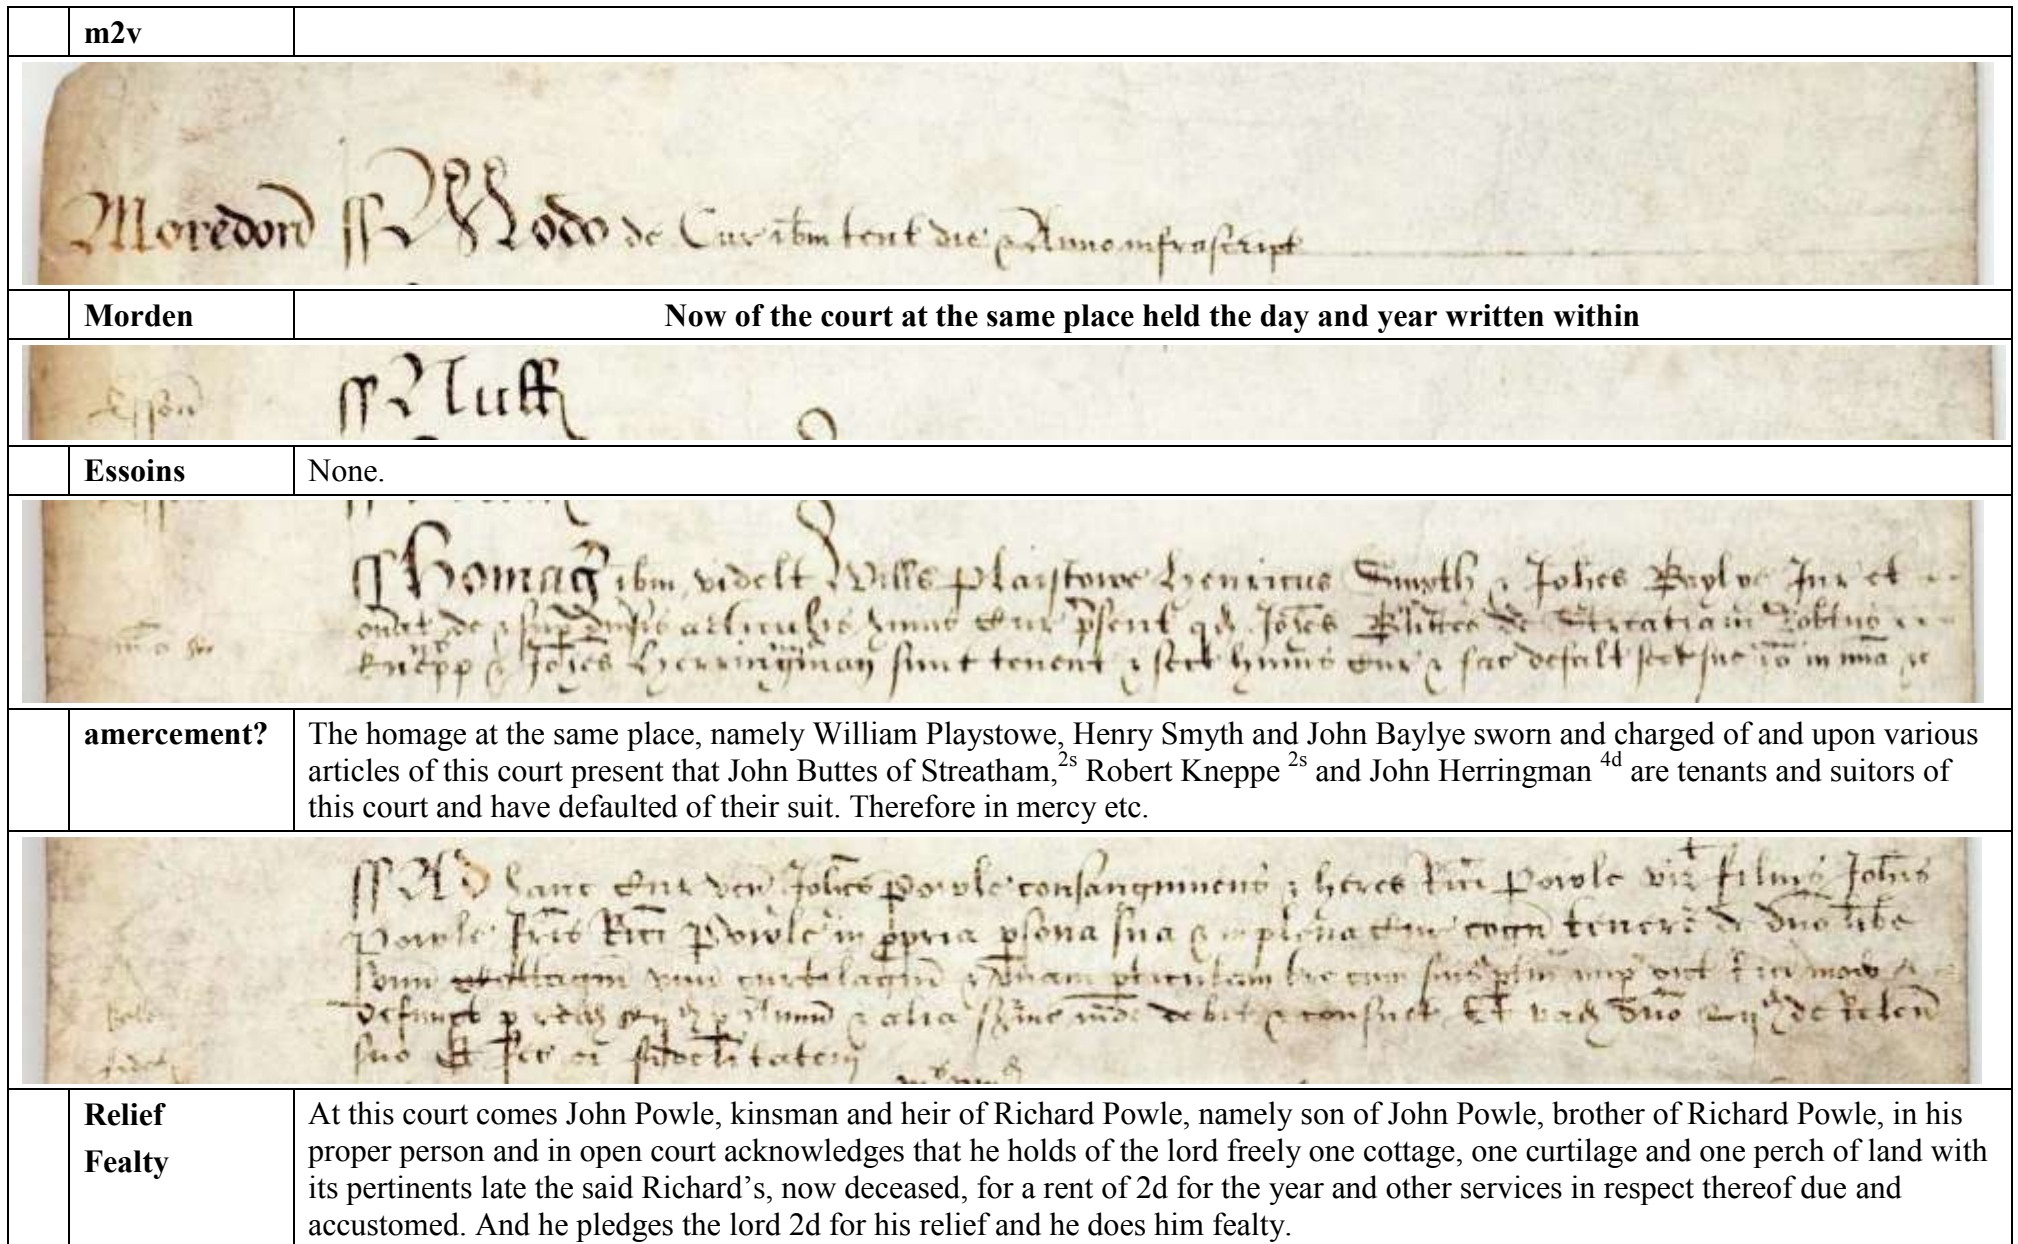 m2v
Moredon Modo de Cur ibm tent die & Anno infrascript
Morden Now of the court at the same place held the day and year written within
Esson Null
Essoins None.
Homag ibm videlt Wills Playstowe Henricus Smyth & Johes Baylye Jur et
de & sup articulis cur psent qd Johes de Robtus
Knepp & Johes Herringman sunt tenent & sect cur & fac defalt sect sue in mia
amercement? The homage at the same place, namely William Playstowe, Henry Smyth and John Baylye sworn and charged of and upon various
articles of this court present that John Buttes of Streatham,2s Robert Kneppe 2s and John Herringman 4d are tenants and suitors of
this court and have defaulted of their suit. Therefore in mercy etc.
Ad hanc Cur ven Johes Powle consanguineus & heres Rici Powle viz filius Johis
Powle fris Rici Powle in ppria psona sua & in plena cur cogn tenere de dno libe
unu curtelagiu & unam cum suis ptin
defunct p & alia inde debit & consuet Et dno de Releu
suo Et fec ei fidelitatem
Relief At this court comes John Powle, kinsman and heir of Richard Powle, namely son of John Powle, brother of Richard Powle, in his
Fealty proper person and in open court acknowledges that he holds of the lord freely one cottage, one curtilage and one perch of land with
its pertinents late the said Richard’s, now deceased, for a rent of 2d for the year and other services in respect thereof due and
accustomed. And he pledges the lord 2d for his relief and he does him fealty.